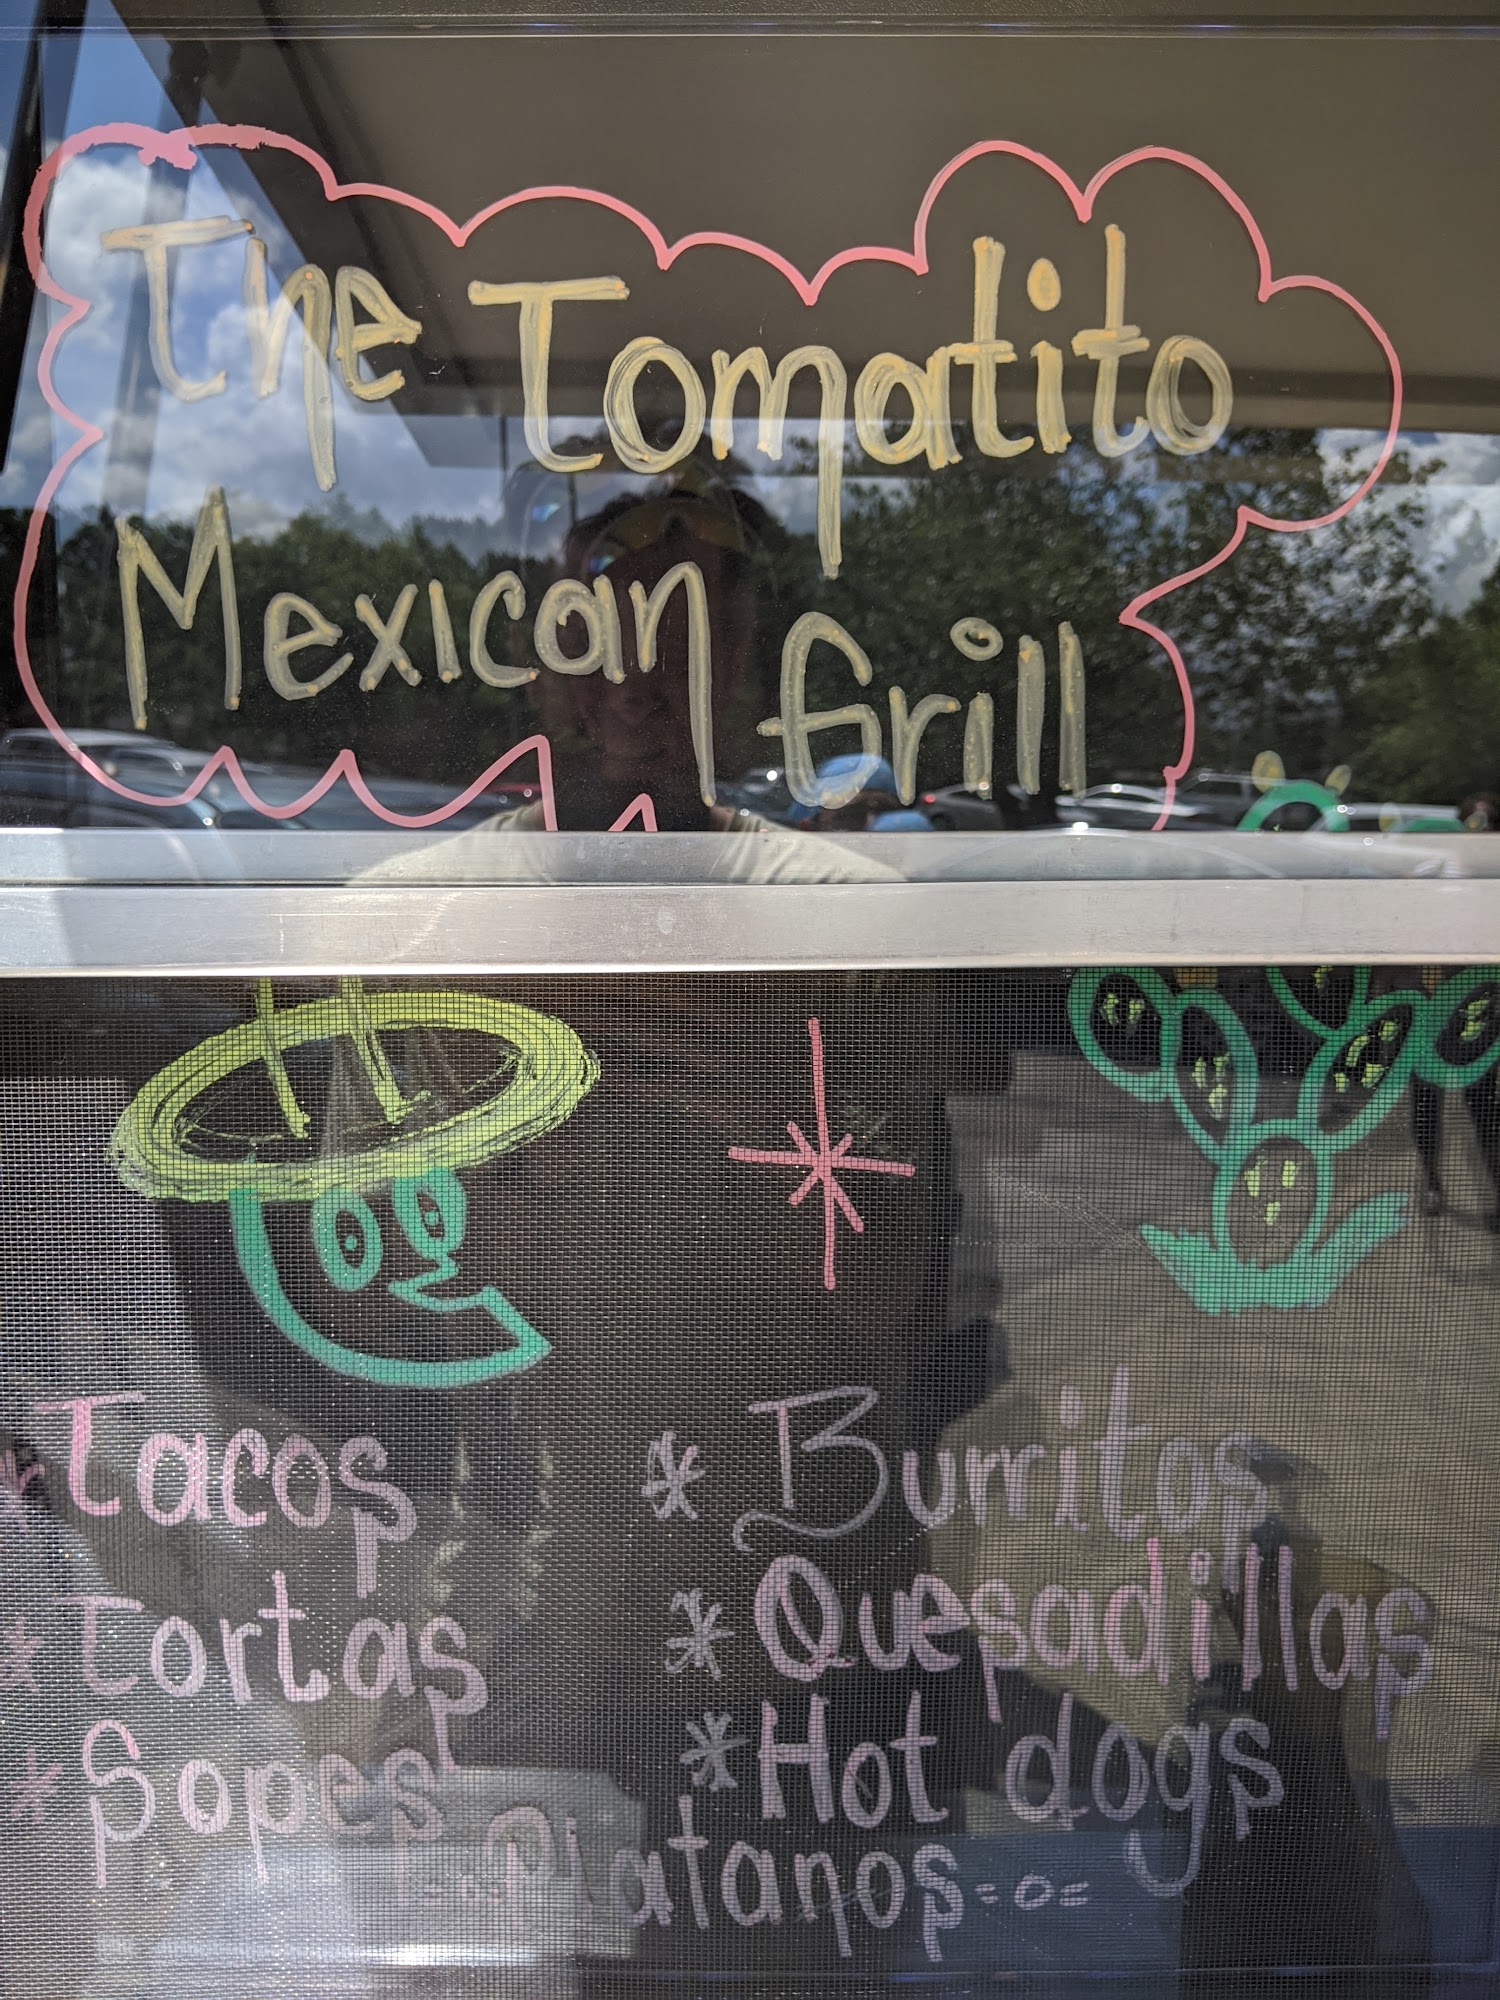 The Tomatito
Mexican Grill
* Tacos
* Burritos
* Tortas
* Quesadillas
* Sopes
* Hot dogs
=o= Platanos =o=